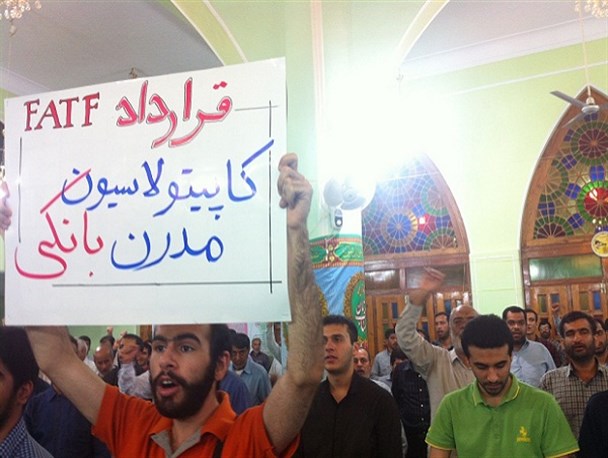 قرارداد FATF
کاپیتولاسیون
مدرن بانکی